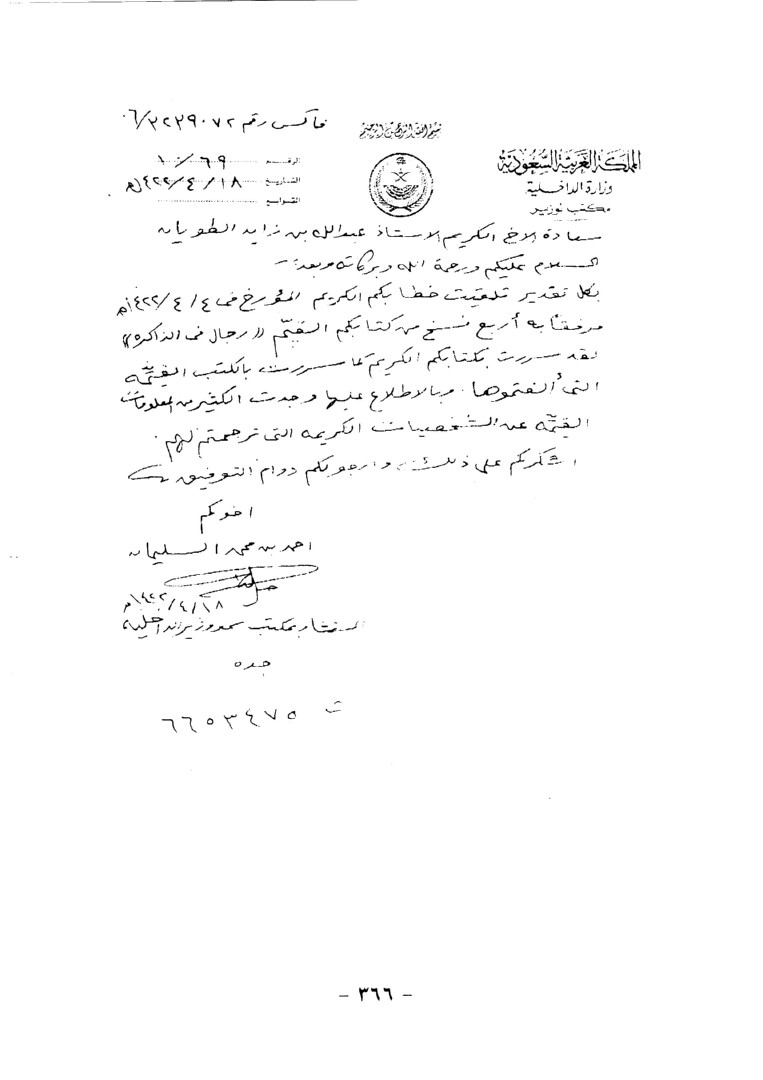 فاكس رقم ٠٦/٣٢٣٩٠٧٢
بسم الله الرحمن الرحيم
المملكة العربية السعودية
وزارة الداخلية
مكتب الوزير
الرقـم ١٠/٦٩
التاريخ ١٤٢٢/٤/١٨هـ
التوابع
سعادة الاخ الكريم الاستاذ عبدالله بن زايد الطويان
السلام عليكم ورحمة الله وبركاته وبعد :-
بكل تقدير تلقيت خطابكم الكريم المؤرخ فى ١٤٢٢/٤/٤هـ
مرفقاً به أربع نسخ من كتابكم القيّم (( رجال فى الذاكره ))
لقد سررت بكتابكم الكريم كما سررت بالكتب القيّمه
التى ألفتموها . وبالاطلاع عليها وجدت الكثير من المعلومات
القيّمه عن الشخصيات الكريمه التى ترجمتم لهم .
اشكركم على ذلك وارجو لكم دوام التوفيق
اخوكم
احمد بن محمد السليمان
١٤٢٢/٤/١٨هـ
المستشار بمكتب سمو وزير الداخليه
جده
ت ٦٦٥٣٤٧٥
- ٣٦٦ -